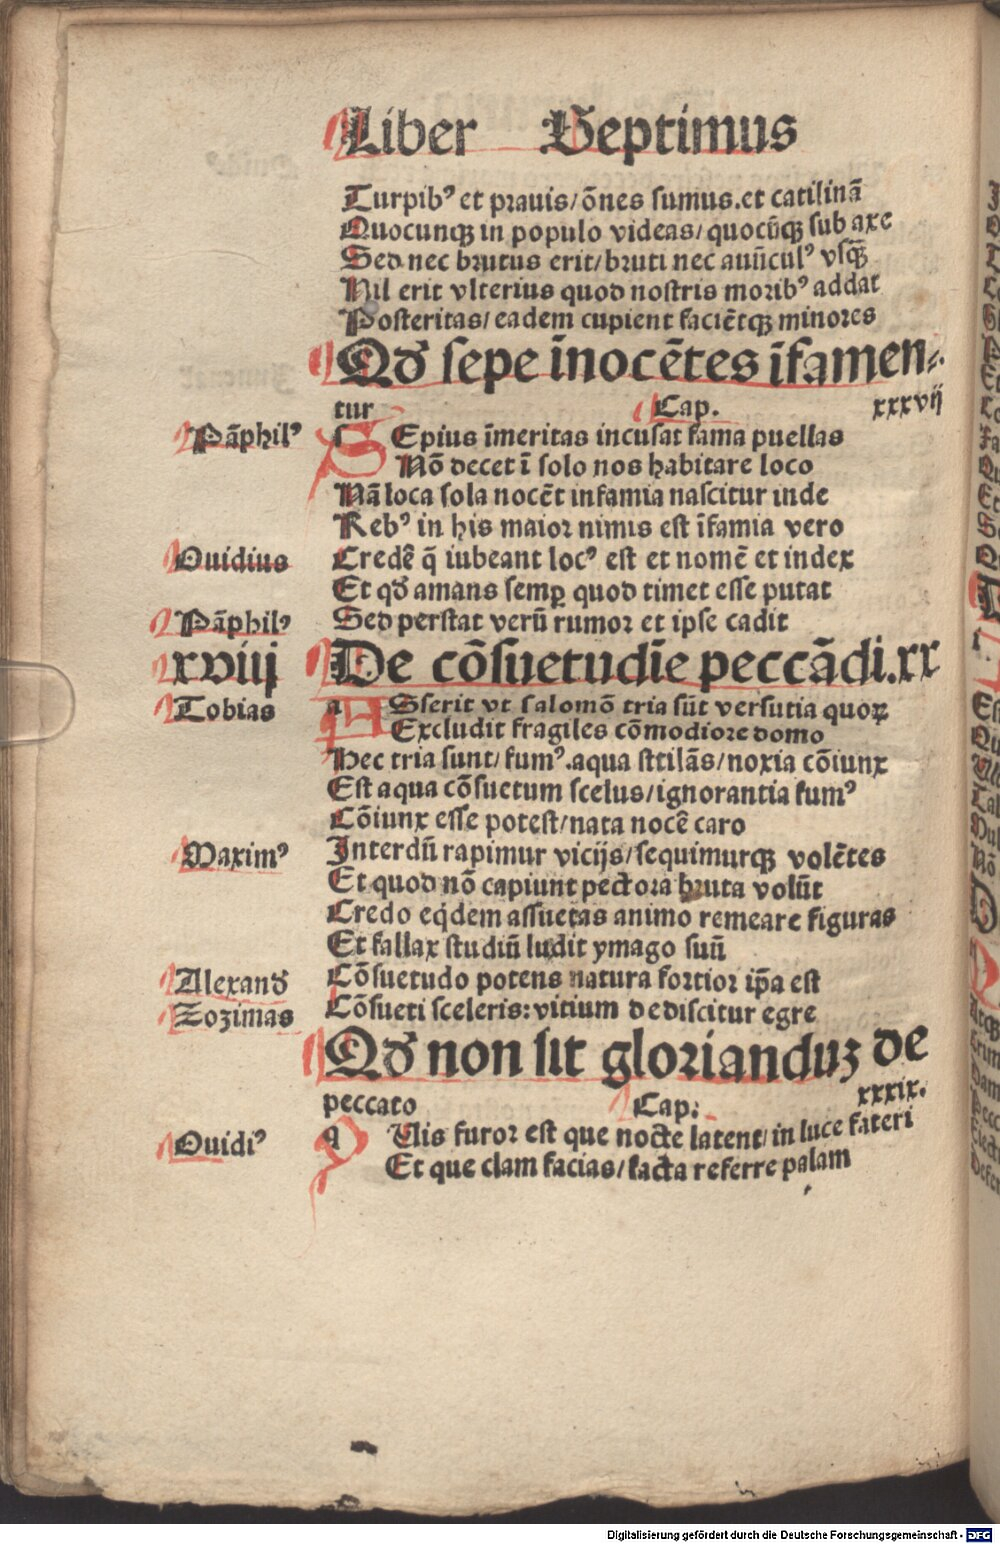 Liber Septimus
Turpibꝰ et prauis/ õnes sumus. et catilinã
Quocunqꝫ in populo videas/ quocũqꝫ sub axe
Sed nec brutus erit/ bruti nec auũculꝰ vsq̃ꝫ
Nil erit vlterius quod nostris moribꝰ addat
Posteritas/ eadem cupient faciẽtqꝫ minores
Qđ sepe ĩnocẽtes ĩfamen⸗
tur Cap. xxxvij
Pãphilꝰ SEpius ĩmeritas incusat fama puellas
Nõ decet ĩ solo nos habitare loco
Nã loca sola nocẽt infamia nascitur inde
Rebꝰ in his maior nimis est ĩfamia vero
Ouidius Credẽ q̃ iubeant locꝰ est et nomẽ et index
Et qđ amans semꝑ quod timet esse putat
Pãphilꝰ Sed perstat verũ rumor et ipse cadit
xviij De cõsuetudĩe peccãdi. xx
Tobias ASserit vt salomõ tria sũt versutia quoꝝ
Excludit fragiles cõmodiore domo
Hec tria sunt/ fumꝰ. aqua sttilãs/ noxia cõiunx
Est aqua cõsuetum scelus/ ignorantia fumꝰ
Cõiunx esse potest/ nata nocẽ caro
Maximꝰ Interdũ rapimur vicijs/ sequimurqꝫ volẽtes
Et quod nõ capiunt pectora bruta volũt
Credo eq̃dem assuetas animo remeare figuras
Et fallax studiũ ludit ymago suũ
Alexanđ Cõsuetudo potens natura fortior ip̃a est
Zozimas Cõsueti sceleris: vitium dediscitur egre
Qđ non sit glorianduꝫ de
peccato Cap: xxxix.
Ouidiꝰ qUis furor est que nocte latent/ in luce fateri
Et que clam facias/ facta referre palam
Digitalisierung gefördert durch die Deutsche Forschungsgemeinschaft - DFG